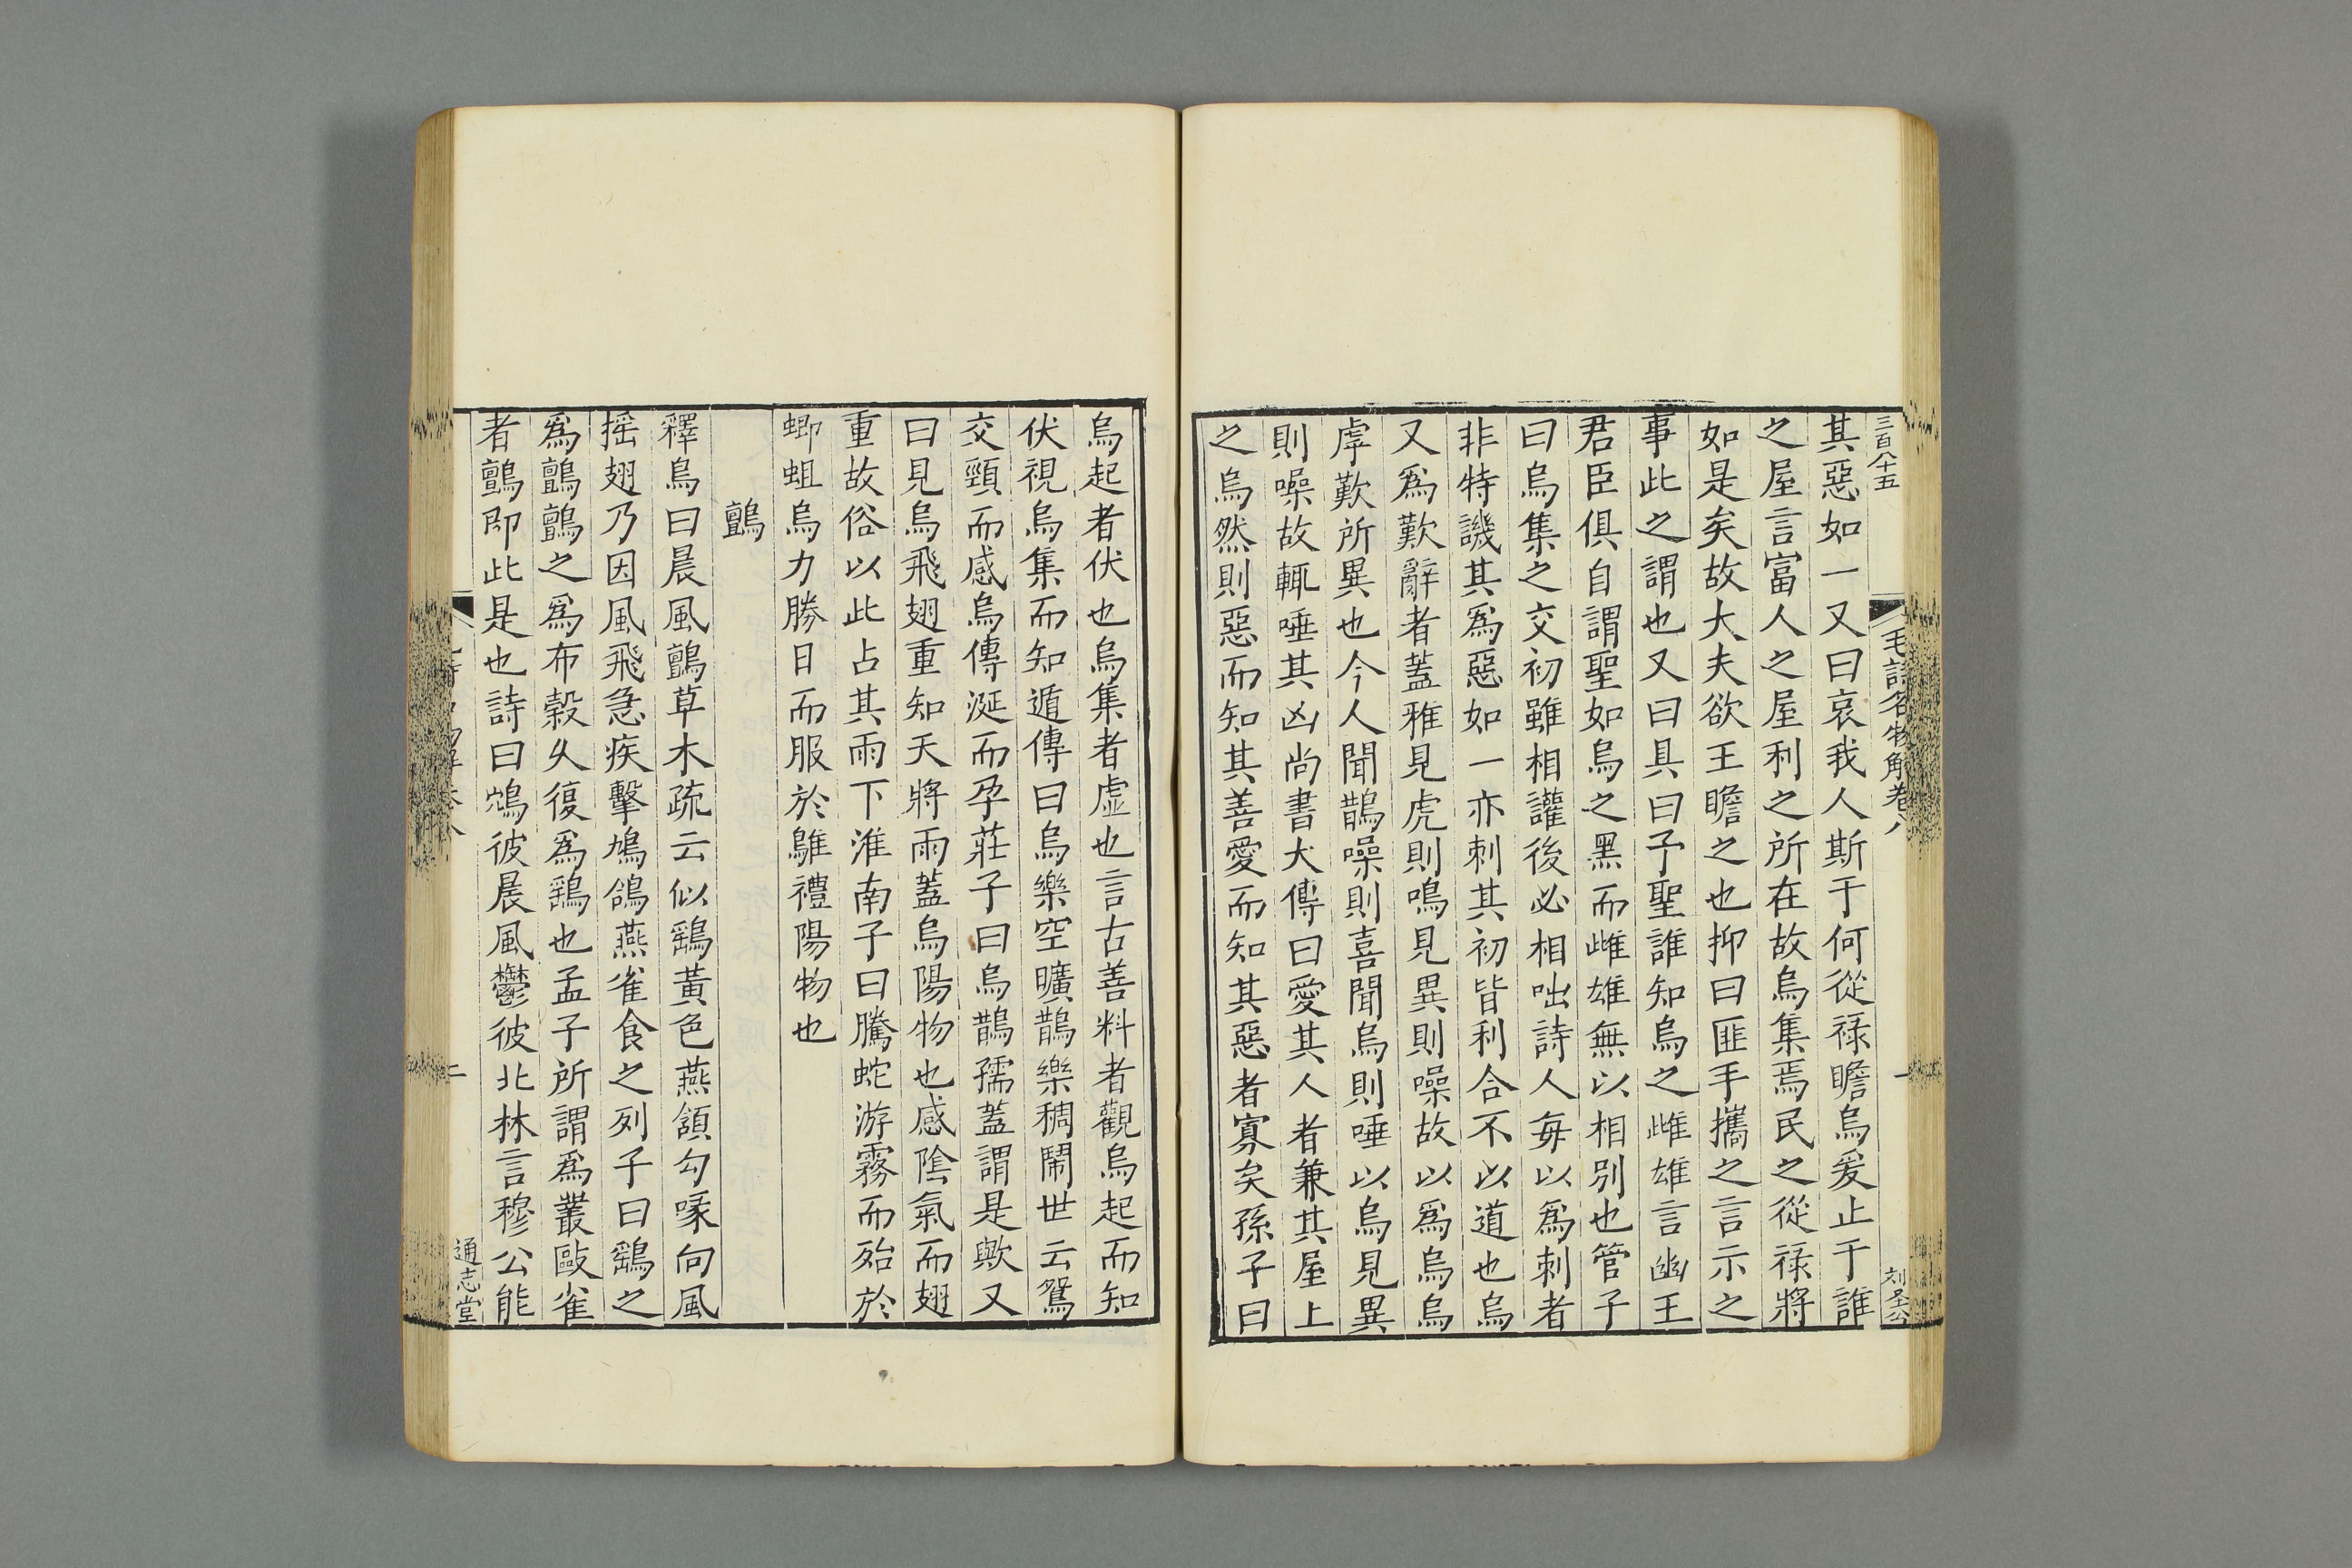 三百八十五
毛詩名物解卷八
一
其惡如一又曰哀我人斯于何從祿瞻烏爰止于誰
之屋言富人之屋利之所在故烏集焉民之從祿將
如是矣故大夫欲王瞻之也抑曰匪手攜之言示之
事此之謂也又曰具曰予聖誰知烏之雌雄言幽王
君臣俱自謂聖如烏之黑而雌雄無以相別也管子
曰烏集之交初雖相讙後必相咄詩人每以為刺者
非特譏其為惡如一亦刺其初皆利合不以道也烏
又為歎辭者蓋雅見虎則鳴見異則噪故以為烏烏
虖歎所異也今人聞鵲噪則喜聞烏則唾以烏見異
則噪故輒唾其凶尚書大傳曰愛其人者兼其屋上
之烏然則惡而知其善愛而知其惡者寡矣孫子曰
烏起者伏也烏集者虛也言古善料者觀烏起而知
伏視烏集而知遁傳曰烏樂空曠鵲樂稠鬧世云鴛
交頸而感烏傳涎而孕莊子曰烏鵲孺蓋謂是歟又
曰見烏飛翅重知天將雨蓋烏陽物也感陰氣而翅
重故俗以此占其雨下淮南子曰騰蛇游霧而殆於
蝍蛆烏力勝日而服於鵻禮陽物也
鸇
釋鳥曰晨風鸇草木疏云似鷂黃色燕頷勾喙向風
搖翅乃因風飛急疾擊鳩鴿燕雀食之列子曰鷂之
為鸇鸇之為布穀久復為鷂也孟子所謂為叢敺雀
者鸇即此是也詩曰鴥彼晨風鬱彼北林言穆公能
二
通志堂